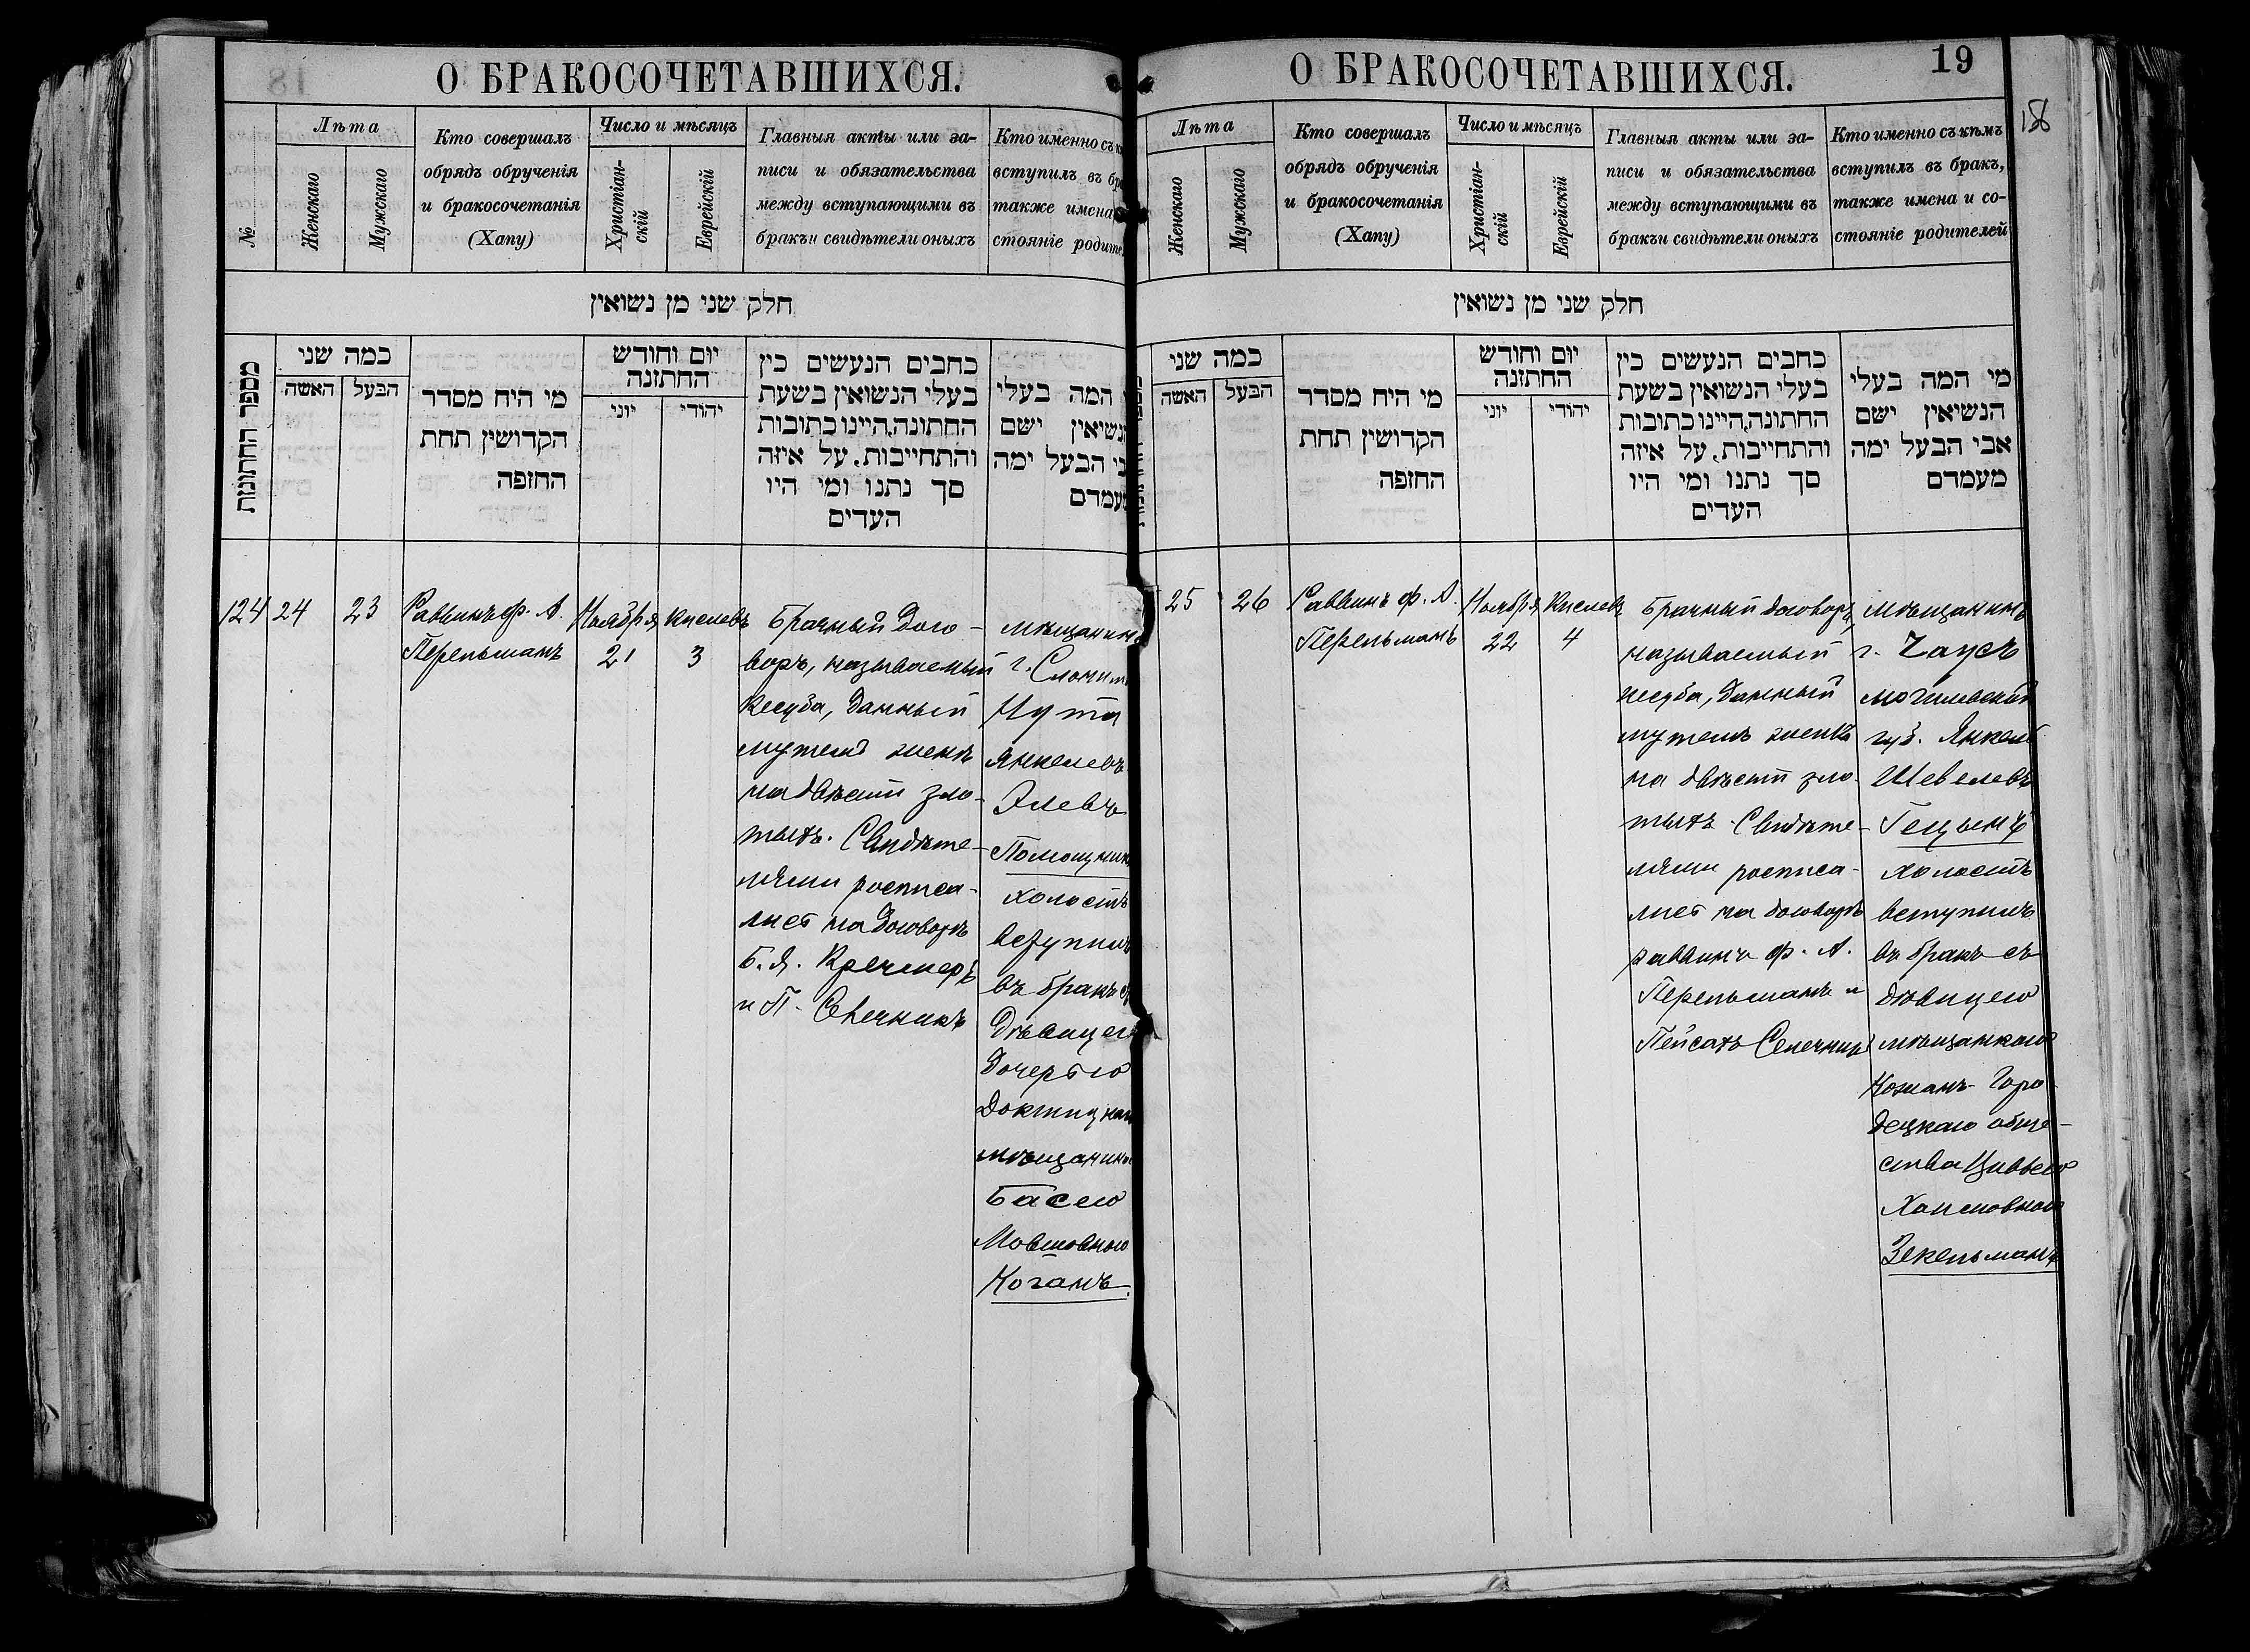 О БРАКОСОЧЕТАВШИХСЯ.
№
Лѣта
Женскаго
Мужскаго
Кто совершалъ
обрядъ обрученія
и бракосочетанія
(Хапу)
Число и мѣсяцъ
Христіан-
скій
Еврейскій
Главныя акты или за-
писи и обязательства
между вступающими въ
бракъи свидѣтели оныхъ
Кто именно съ
вступилъ въ
также имена
стояніе
חלק שני מן נשואין
מספר החתונות
כמה שני
האשה
הבעל
מי היח מסדר
הקדושין תחת
החזפה
יום וחודש
החתונה
יוני
יהודי
כחבים הנעשים כין
בעלי הנשואין בשעת
החתונה,היינו כתובות
והתחייבות, על איזה
סך נתנו ומי היו
העדים
המה בעלי
ישם
הבעל ימה
124
24
23
Раввинъ ф. А.
Перельманъ
Ноября
21
Кислевъ
3
Брачный дого-
воръ, называемый
кесуба, данный
мужемъ женѣ
на двѣсти зло-
тыхъ. Свидѣте-
лями росписа-
лись на договорѣ
Б. Я. Кречмеръ
и П.
мѣщанинъ
г. Слонима
Янкелевъ
холостъ
вступилъ
въ бракъ съ
дѣвицею
дочерью
мѣщанина
Басею
Мовшовною
Коганъ.
О БРАКОСОЧЕТАВШИХСЯ.
19
Лѣта
Женскаго
Мужскаго
Кто совершалъ
обрядъ обрученія
и бракосочетанія
(Хапу)
Число и мѣсяцъ
Христіан-
скій
Еврейскій
Главныя акты или за-
писи и обязательства
между вступающими въ
бракъи свидѣтели оныхъ
Кто именно съ кѣмъ
вступилъ въ бракъ,
также имена и со-
стояніе родителей
חלק שני מן נשואין
כמה שני
האשה
הבעל
מי היח מסדר
הקדושין תחת
החזפה
יום וחודש
החתונה
יוני
יהודי
כחבים הנעשים כין
בעלי הנשואין בשעת
החתונה,היינו כתובות
והתחייבות, על איזה
סך נתנו ומי היו
העדים
מי המה בעלי
הנשיאין ישם
אבי הבעל ימה
מעמדם
25
26
Раввинъ ф. А.
Перельманъ
Ноября
22
Кислевъ
4
Брачный договоръ,
называемый
кесуба, данный
мужемъ женѣ
на двѣсти зло-
тыхъ. Свидѣте-
лями росписа-
лись на договорѣ
раввинъ ф. А.
Перельманъ и
Пейсахъ
мѣщанинъ
г. Чаусъ
могилевской
губ. Янкель
Шевелевъ
холостъ
вступилъ
въ бракъ съ
дѣвицею
мѣщанкою
Кожанъ-Горо-
децкаго обще-
ства Цивьею
Хаимовною
Зекельманъ